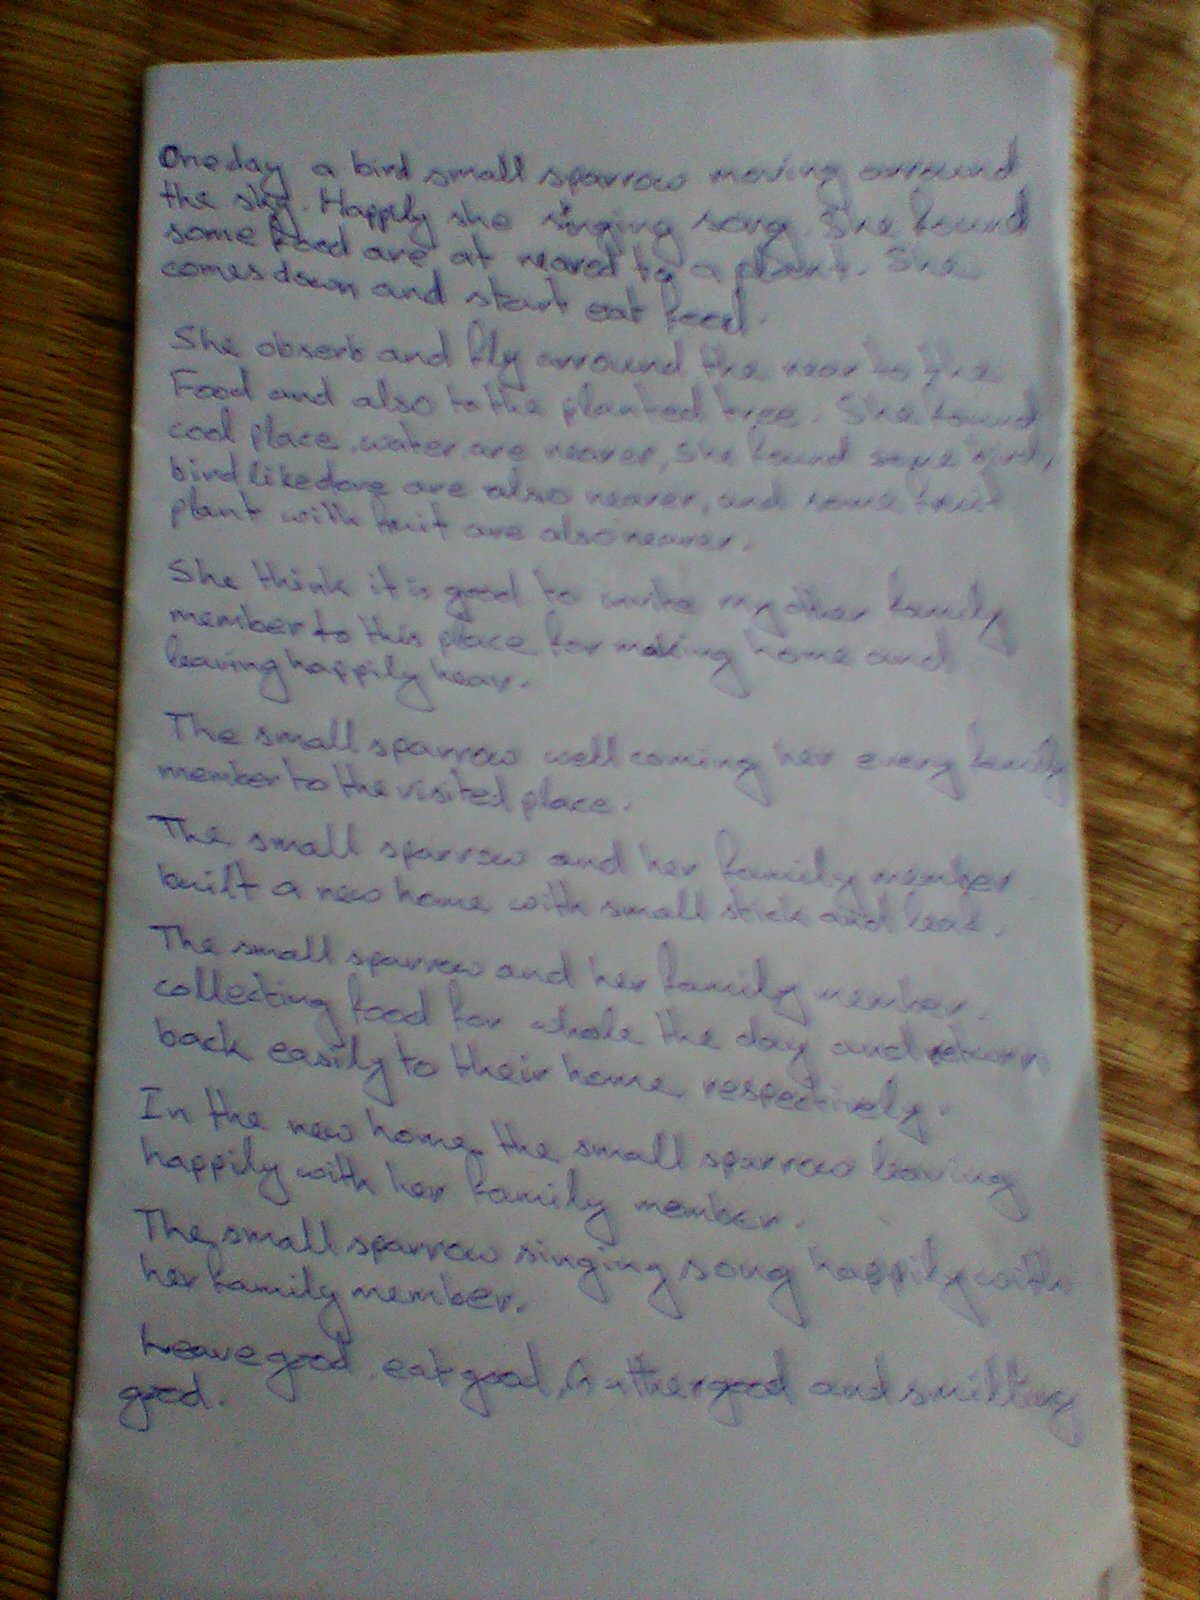 One day a bird small sparrow moving arround
the sky. Happily she singing song. She found
some food are at neared to a plant. She
comes down and start eat food.
She obserb and fly arround the near to the
Food and also to the planted tree. She found
cool place, water are nearer, She found some
bird like dove are also nearer, and some fruit
plant with fruit are also nearer.
She think it is good to invite my other family
member to this place for making home and
leaving happily hear.
The small sparrow well coming her every family
member to the visited place.
The small sparrow and her family member
built a new home with small stick and leaf.
The small sparrow and her family member
collecting food for whole the day and return
back easily to their home respectively.
In the new home the small sparrow leaving
happily with her family member.
The small sparrow singing song happily with
her family member.
Leave good, eat good, good and smilling
good.